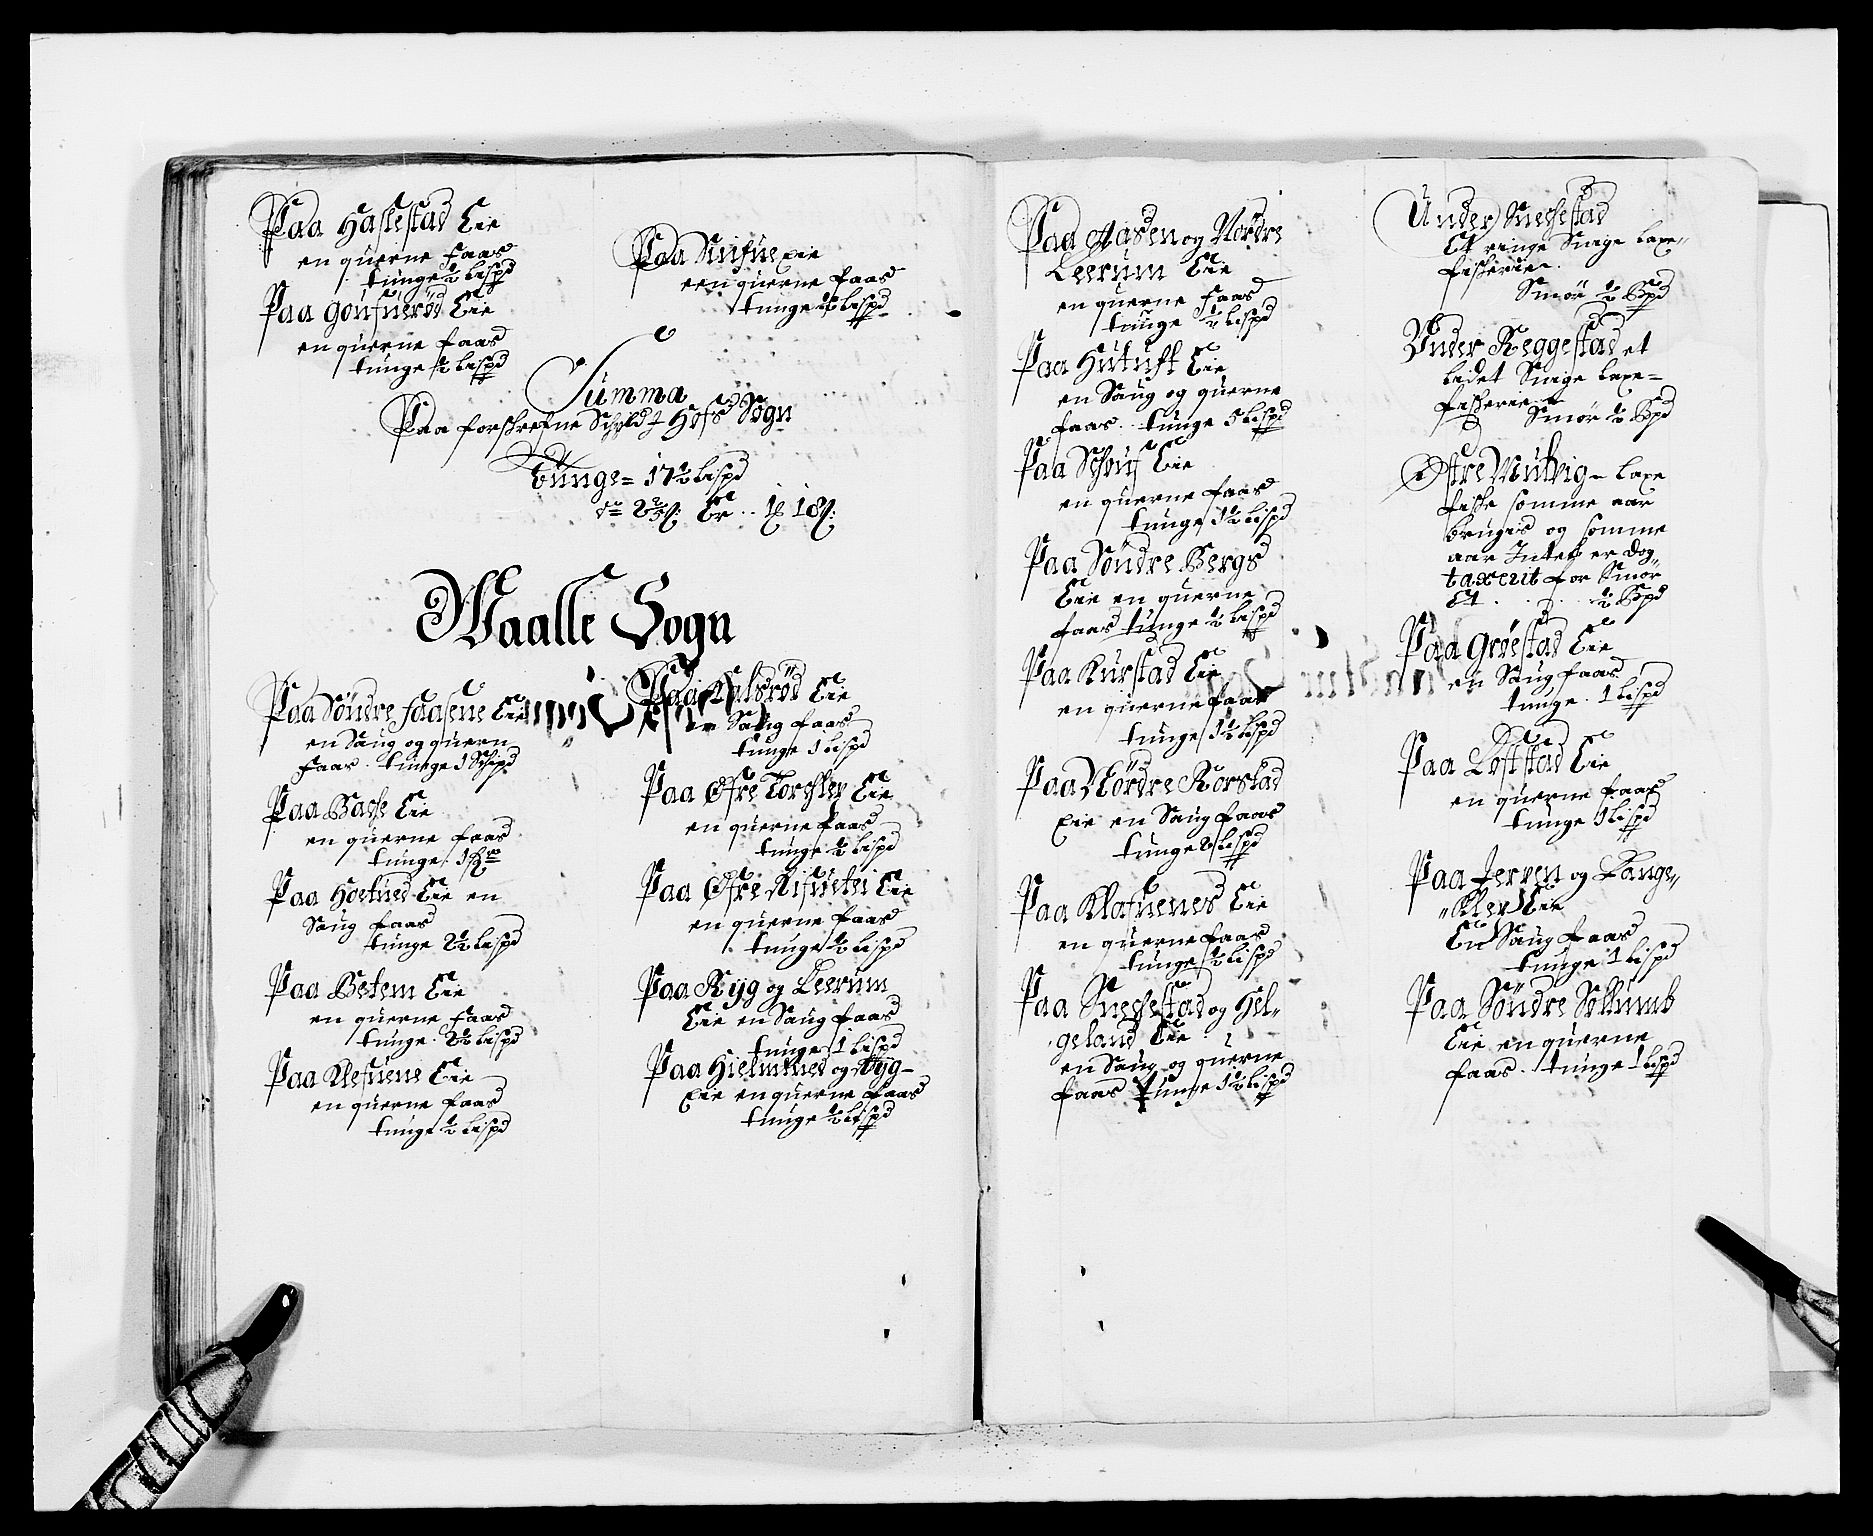 Paa Haskestad Eie
en querne faas
tunge ½ Lispd
Paa gousuerød Eie
en querne faas
tunge ½ Lispd
Paa Eie
een querne faas
tunge ½ Lispd
Summa
Paa forskrefne Schyld I Hofs Sogn
Tunge = 17½ Lispd
Er
Waalle Sogn
Paa Søndre faasene Eie
en Saug og quern
faas. tunge 1 Schpd
Paa Basse Eie
en querne faas
tunge
Paa Hoelued Eie en
Saug faas
tunge 2½ Lispd
Paa Betem Eie
en querne faas
tunge 2½ Lispd
Paa Klefuene Eie
en querne faas
tunge ½ Lispd
Paa Kalsrød Eie
en Saug faas
tunge 1 Lispd
Paa Øfre Eie
en querne faas
tunge ½ Lispd
Paa Øfre Eie
en querne faas
tunge ½ Lispd
Paa Ryg og Leerum
Eie en Saug faas
tunge 1 Lispd
Paa Hielmtued og Ryg
Eie en querne faas
tunge ½ Lispd
Paa Aasen og Nordre
Leerum Eie
en querne faas
tunge ½ Lispd
Paa Hutuft Eie
en Saug og querne
faas. tunge 5 Lispd
Paa Eie
en querne faas
tunge 1½ Lispd
Paa Søndre Bergs
Eie en querne
faas tunge ½ Lispd
Paa Kurstad Eie
en querne faas
tunge 1½ Lispd
Paa Nordre Korstad
Eie en Saug faas
tunge 2 Lispd
Paa Klafuenes Eie
en querne faas
tunge ½ Lispd
Paa Snessestad og Hel-
geland Eie
en Saug og querne
faas tunge 1½ Lispd
Under Snessestad
Et ringe Snige Laxe-
fischerie.
Smør ½ Bpd
Under Reggestad et
lidet Snige Laxe-
fischerie
Smør ½ Bpd
Østre Mulvig - Laxe
fische somme aar
bruges og somme
aar Intet er dog
taxerit for Smør
Et . . . ½ Bpd
Paa Grøestad Eie
en Saug faas
tunge 1 Lispd
Paa Løftstad Eie
en querne faas
tunge 1 Lispd
Paa Jerven og Lange-
Kler Eie
En Saug faas
tunge 1 Lispd
Paa Søndre Solkumb
Eie en querne
faas. tunge 1 Lispd